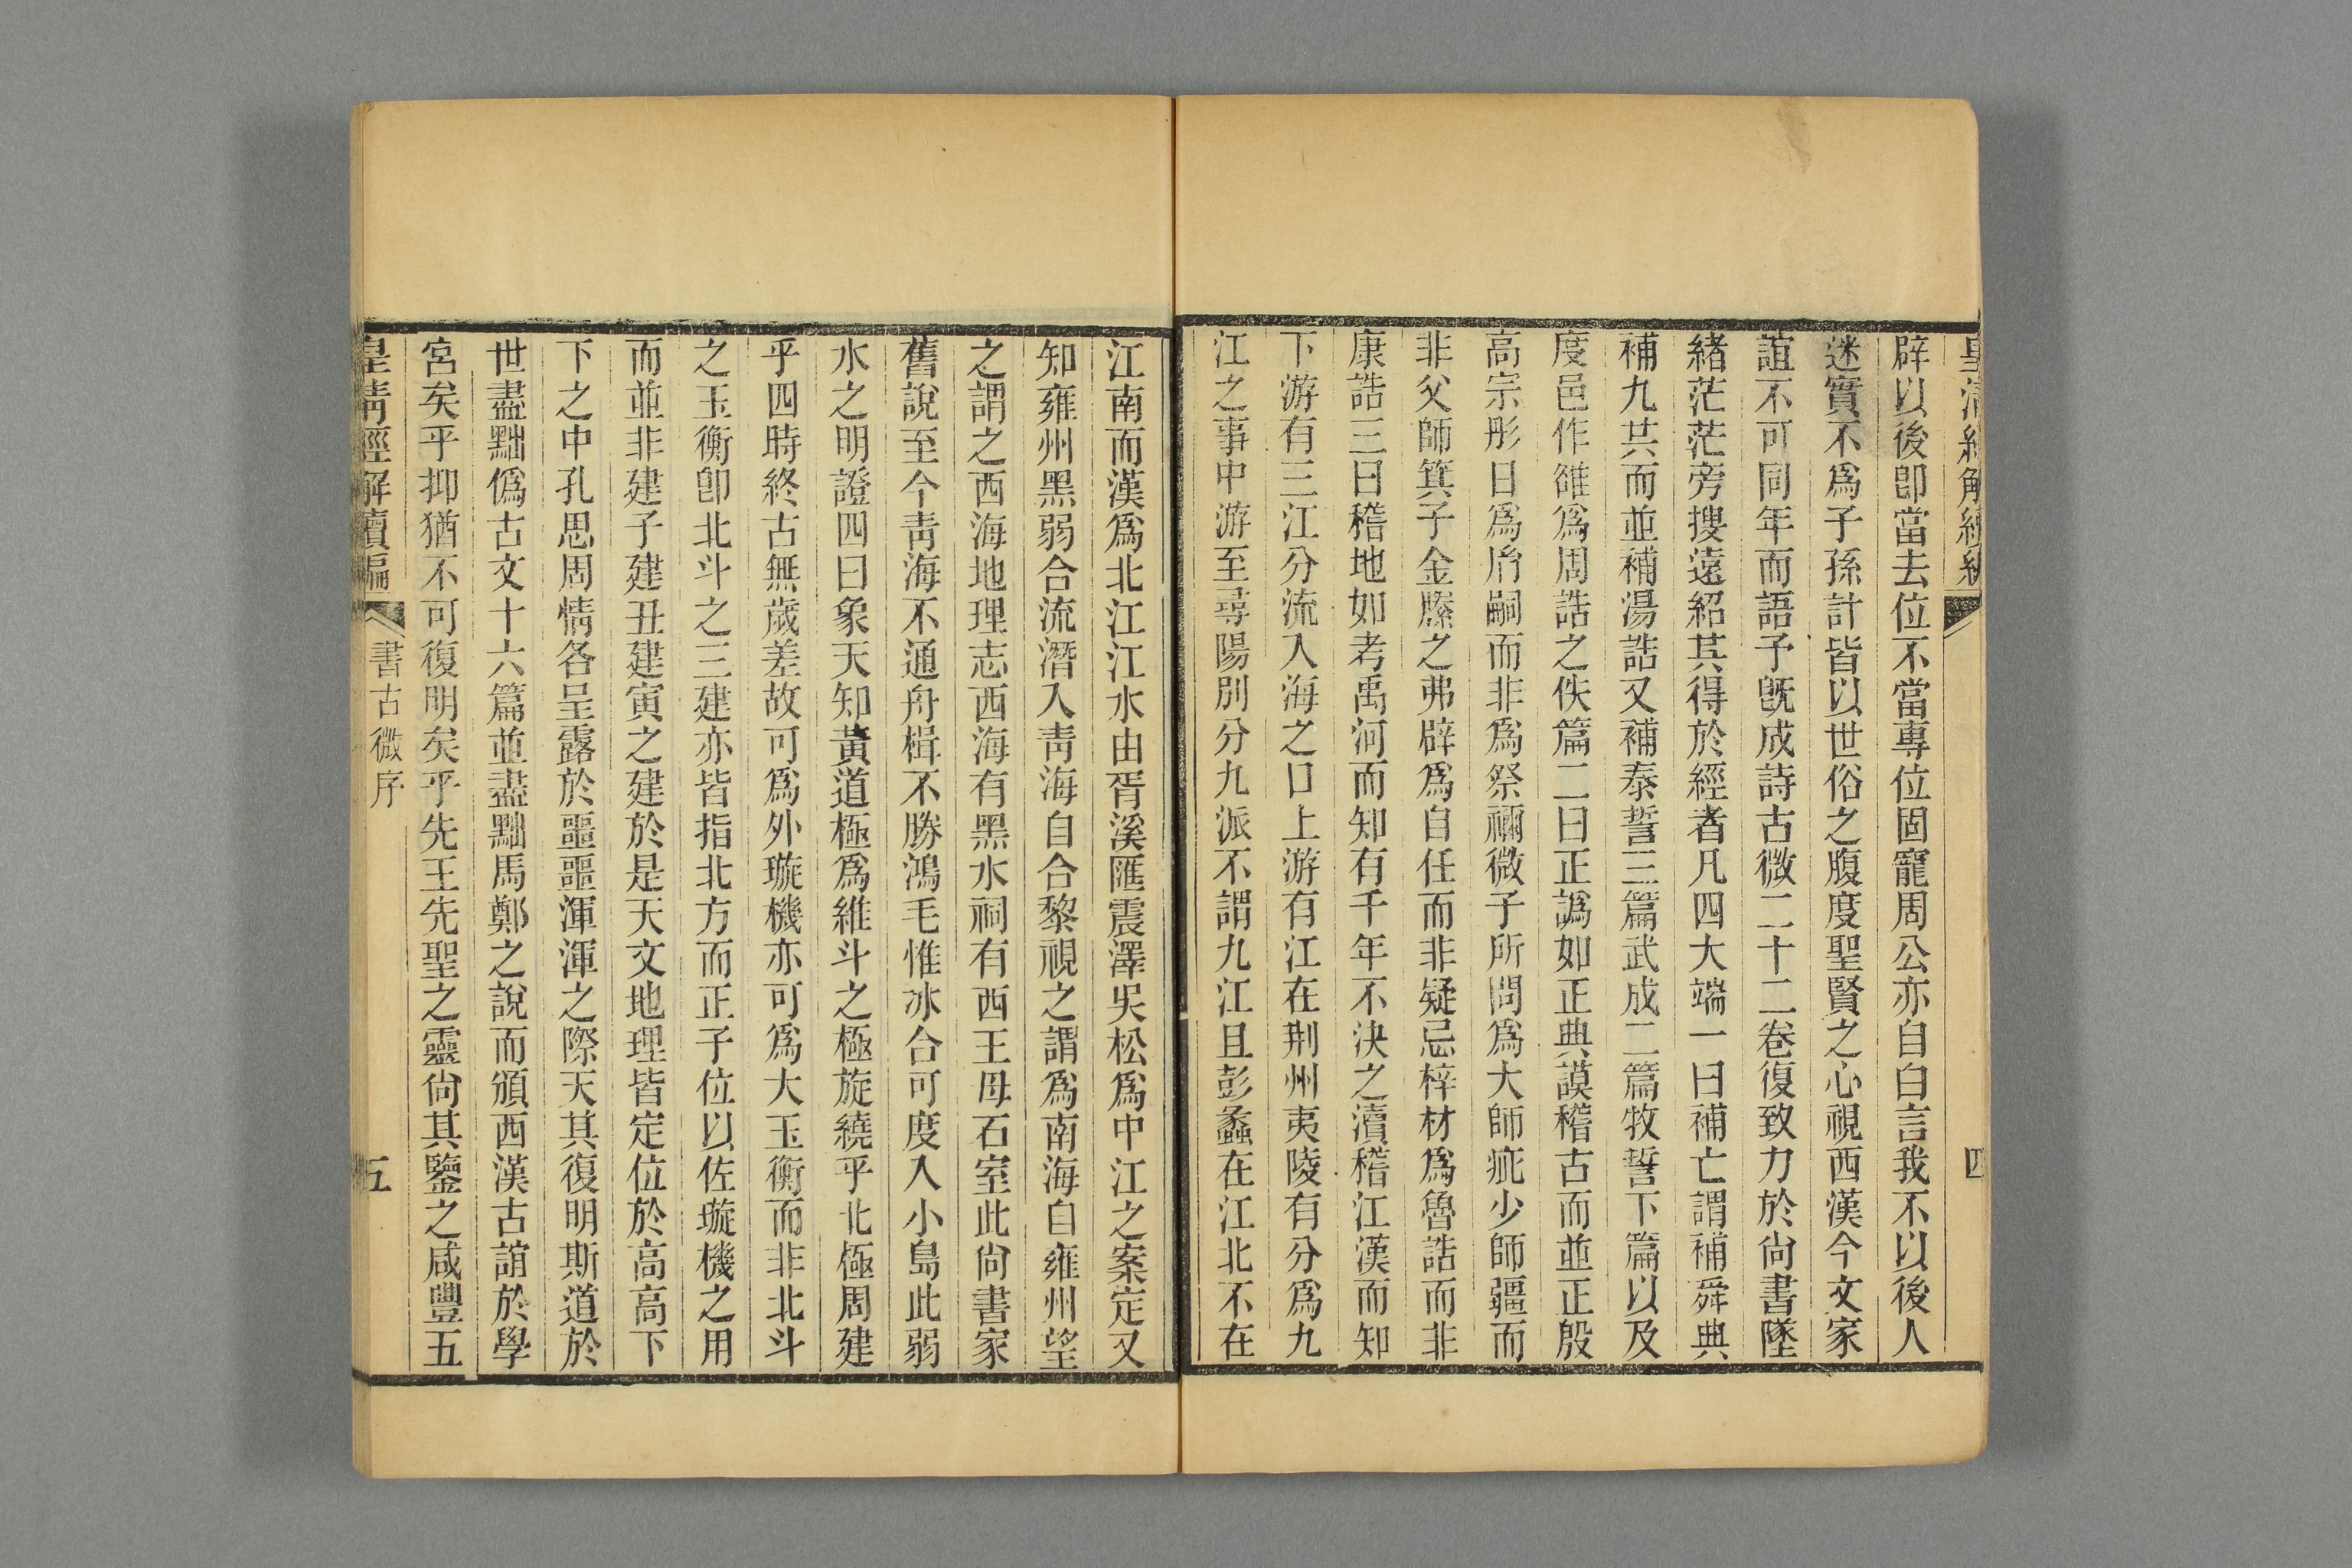 皇清經解續編
四
辟以後卽當去位不當專位固寵周公亦自白言我不以後人
迷實不爲子孫計皆以世俗之腹度聖賢之心視西漢今文家
誼不可同年而語予旣成詩古微二十二卷復致力於尙書墜
緒茫茫旁搜遠紹其得於經者凡四大端一曰補亡謂補舜典
補九共而並補湯誥又補泰誓三篇武成二篇牧誓下篇以及
度邑作雒爲周誥之佚篇二曰正譌如正典謨稽古而並正殷
高宗肜日爲胤嗣而非爲祭禰微子所問爲大師疵少師彊而
非父師箕子金縢之弗辟爲自任而非疑忌梓材爲魯誥而非
康誥三曰稽地如考禹河而知有千年不決之瀆稽江漢而知
下游有三江分流入海之口上游有江在荆州夷陵有分爲九
江之事中游至尋陽別分九派不謂九江且彭蠡在江北不在
江南而漢爲北江江水由胥溪匯震澤吳松爲中江之案定又
知雍州黑弱合流潛入靑海自合黎視之謂爲南海自雍州望
之謂之西海地理志西海有黑水祠有西王母石室此尙書家
舊說至今靑海不通舟楫不勝鴻毛惟冰合可度入小島此弱
水之明證四曰象天知黃道極爲維斗之極旋繞乎北極周建
乎四時終古無歲差故可爲外璇機亦可爲大玉衡而非北斗
之玉衡卽北斗之三建亦皆指北方而正子位以佐璇機之用
而並非建子建丑建寅之建於是天文地理皆定位於高高下
下之中孔思周情各呈露於噩噩渾渾之際天其復明斯道於
世盡黜僞古文十六篇並盡黜馬鄭之說而頒西漢古誼於學
宮矣乎抑猶不可復明矣乎先王先聖之靈尙其鑒之咸豐五
皇淸經解續編
書古微序
五